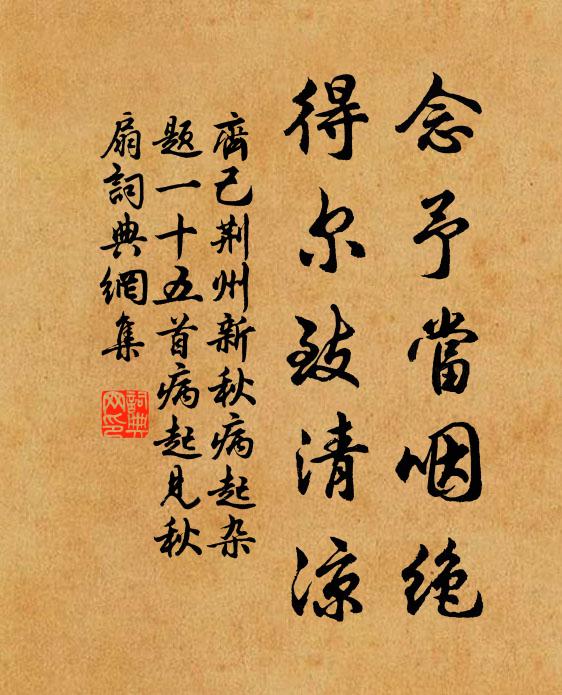 念予當咽绝
得尔致清凉
齊己荆州新秋病起杂
题一十五首病起見秋
扇詞典網集
詞典网印